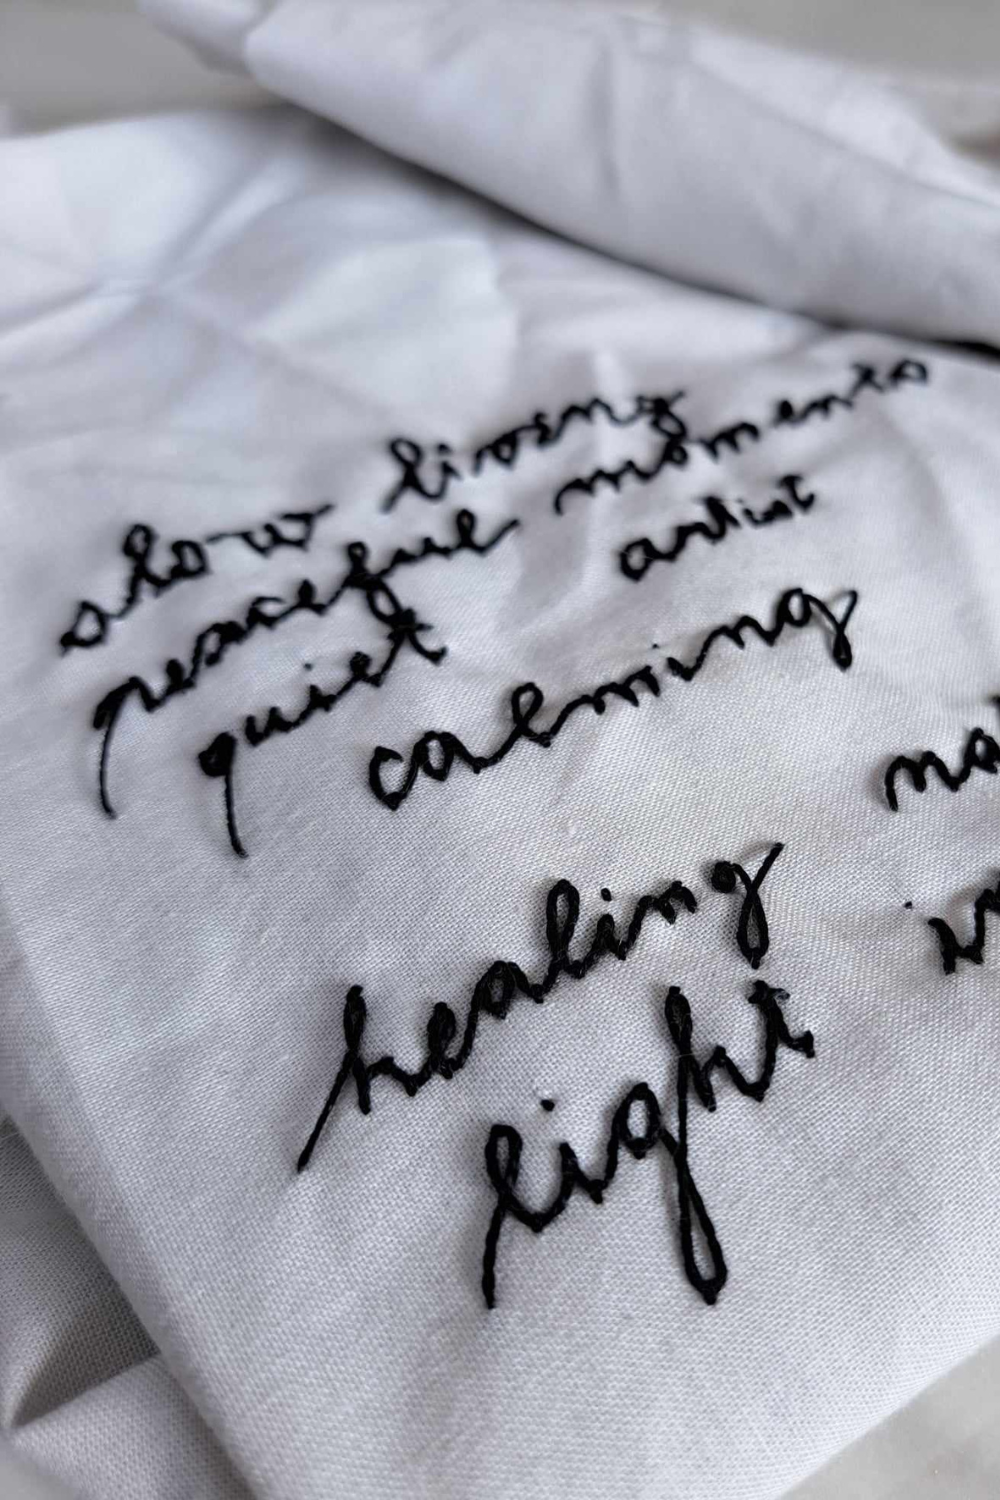 slow living
peaceful moments
quiet artist
calming
healing
light